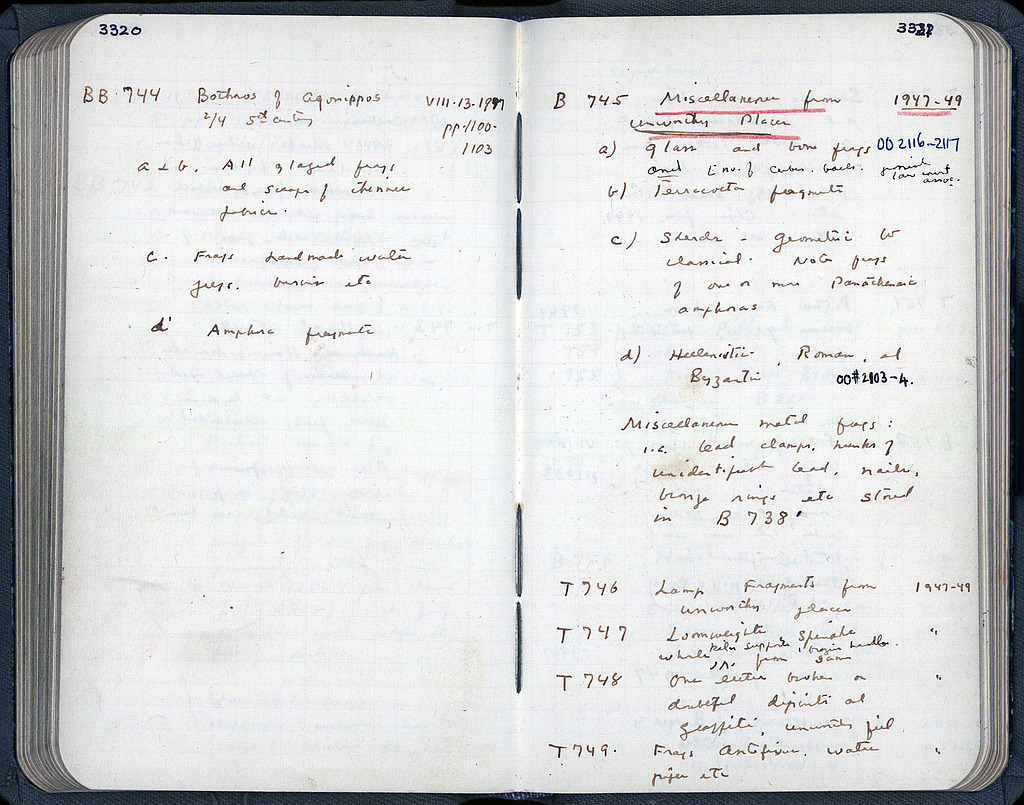 3320
BB 744 Bothros of Agonippos VIII-13-1947
2/4 5th century pp. 1100-
1103
a & b. All glazed frags
and scraps of chemice
fabric.
c. Frags handmade water
jugs. basins etc
d Amphora fragments
3321
B 745 Miscellaneous from 1947-49
unworthy Places
a) glass and bone frags 00 2116-2117
and Env. of cubes, balls.
b) Terracotta fragments
c) Sherds - Geometric to
classical. Note frags
of one or more Panathenaic
amphoras
d) Hellenistic, Roman, and
Byzantine 00#2103-4.
Miscellaneous metal frags:
i.e. lead clamps, hunks of
unidentifiable lead, nails,
bronze rings etc stored
in B 738
T 746 Lamp Fragments from 1947-49
unworthy places
T 747 Loomweights Spindle "
whorls kiln supports, brazier handles.
from same
T 748 One letter broken or "
doubtful dipinti and
graffiti, unworthy
T 749. Frags Antifixes, water "
pipes etc